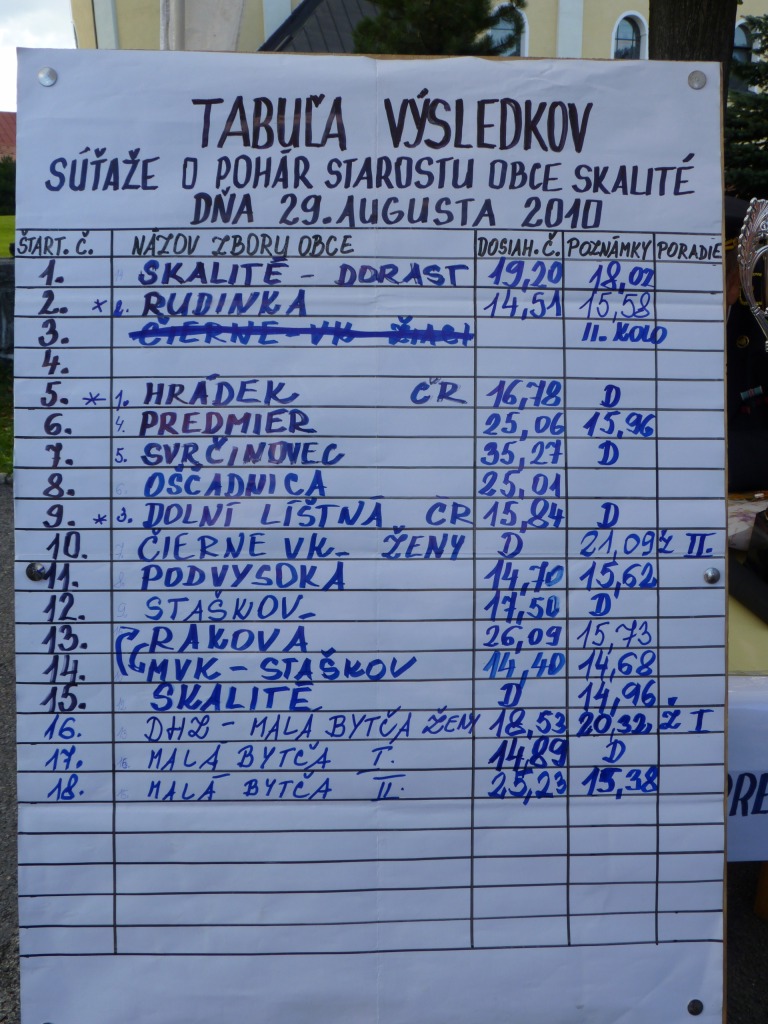 TABUĽA VÝSLEDKOV
SÚŤAŽE O POHÁR STAROSTU OBCE SKALITÉ
DŇA 29. AUGUSTA 2010
ŠTART. Č. NÁZOV ZBORU OBCE DOSIAH. Č. POZNÁMKY PORADIE
1. SKALITÉ - DORAST 19,20 18,02
2. * 2. RUDINKA 14,51 15,58
3. ČIERNE - VK ŽIACI II. KOLO
4.
5. * 1. HRÁDEK ČR 16,78 D
6. 4. PREDMIER 25,06 15,96
7. 5. SVRČINOVEC 35,27 D
8. 6. OŠČADNICA 25,01
9. * 3. DOLNÍ LÍŠTNÁ ČR 15,84 D
10. 7. ČIERNE VK- ŽENY D 21,09 Ž II.
11. 8. PODVYSOKA 14,70 15,62
12. 9. STAŠKOV- 17,50 D
13. RAKOVA 26,09 15,73
14. MVK - STAŠKOV 14,40 14,68
15. SKALITÉ D 14,96
16. DHZ - MALÁ BYTČA ŽENY 18,53 20,32 Ž I
17. MALÁ BYTČA I. 14,89 D
18. MALÁ BYTČA II. 25,23 15,38
PRE